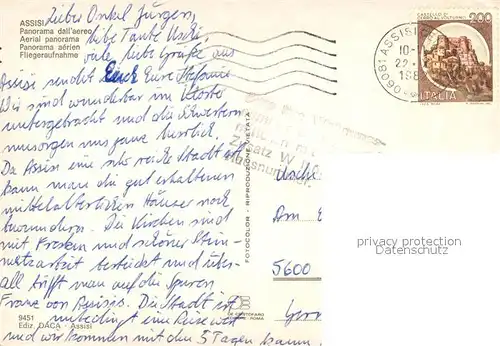 Lieber Onkel Jürgen,
liebe Tante Uschi,
viele liebe Grüße aus
Assisi sendet Euch Eure Stefanie
Wir sind wunderbar im Kloster
untergebracht und die Schwestern
umsorgen uns ganz herrlich.
Da Assisi eine sehr reiche Stadt ist
kann man die gut erhaltenen
mittelalterlichen Häuser noch
bewundern. Die Kirchen sind
mit Fresken und schöner Stein-
metzarbeit bestückt und über-
all trifft man auf die Spuren
Franz von Assisis. Die Stadt ist
unbedingt eine Reise wert
und wir kommen mit den 5 Tagen kaum
ASSISI
Panorama dall'aereo
Aerial panorama
Panorama aérien
Fliegeraufnahme
9451
Ediz. DACA - Assisi
FOTOCOLOR - RIPRODUZIONE VIETATA
06081 ASSISI
10-
22.
198
200
ITALIA
Zusatz W
Hausnummer.
Am
5600
privacy protection
Datenschutz